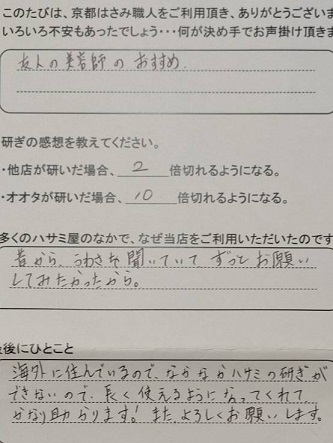 このたびは、京都はさみ職人をご利用頂き、ありがとうございま
いろいろ不安もあったでしょう・・・何が決め手でお声掛け頂きま
友人の美容師のおすすめ.
研ぎの感想を教えてください。
・他店が研いだ場合、2倍切れるようになる。
・オオタが研いだ場合、10倍切れるようになる。
多くのハサミ屋のなかで、なぜ当店をご利用いただいたのです
昔から、うわさを聞いていて ずっとお願い
してみたかったから。
最後にひとこと
海外に住んでいるので、なかなかハサミの研ぎが
できないので、長く使えるようになってくれて
かなり助かります! また、よろしくお願いします。